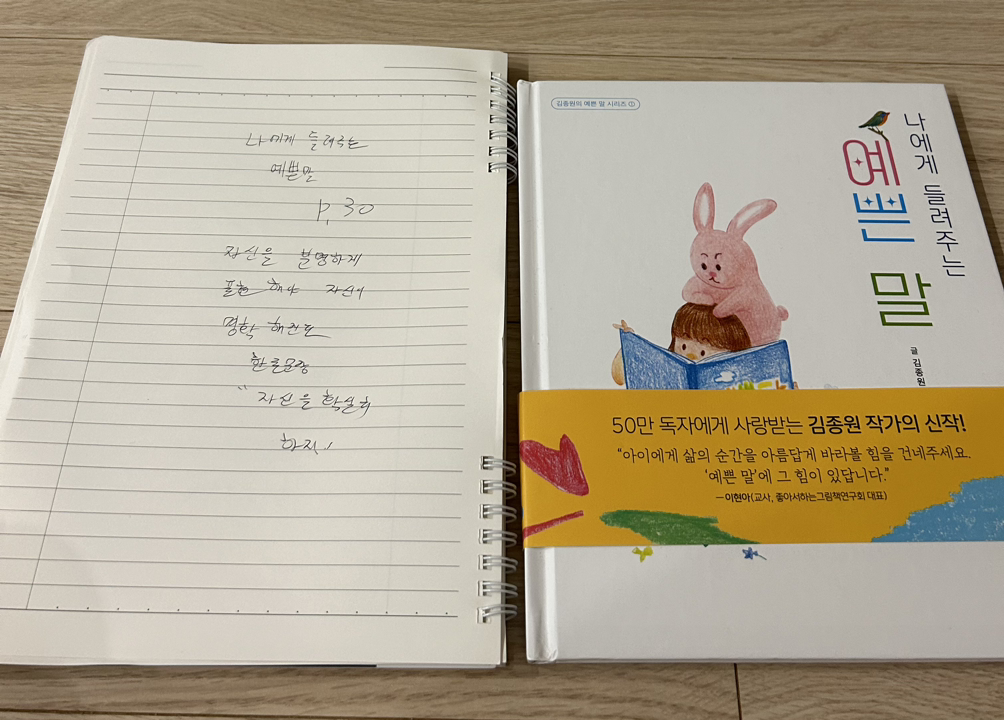 나에게 들려주는
예쁜말
p, 30
자신을 분명하게
표현 해야 자신이
명확 해진다
한줄문장
"자신을 확실히
하자!
김종원의 예쁜 말 시리즈 ①
나에게 들려주는
예쁜 말
글 김종원
50만 독자에게 사랑받는 김종원 작가의 신작!
“아이에게 삶의 순간을 아름답게 바라볼 힘을 건네주세요.
‘예쁜 말’에 그 힘이 있답니다.”
—이현아(교사, 좋아서하는그림책연구회 대표)